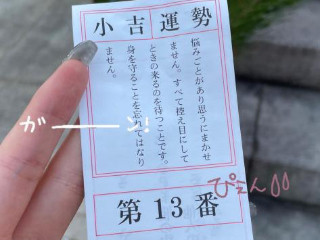 小吉運勢
悩みごとがあり思うにまかせ
ません。すべて控え目にして
ときの来るのを待つことです。
身を守ることを忘れてはなり
ません。
がーーん
ぴえん
第13番